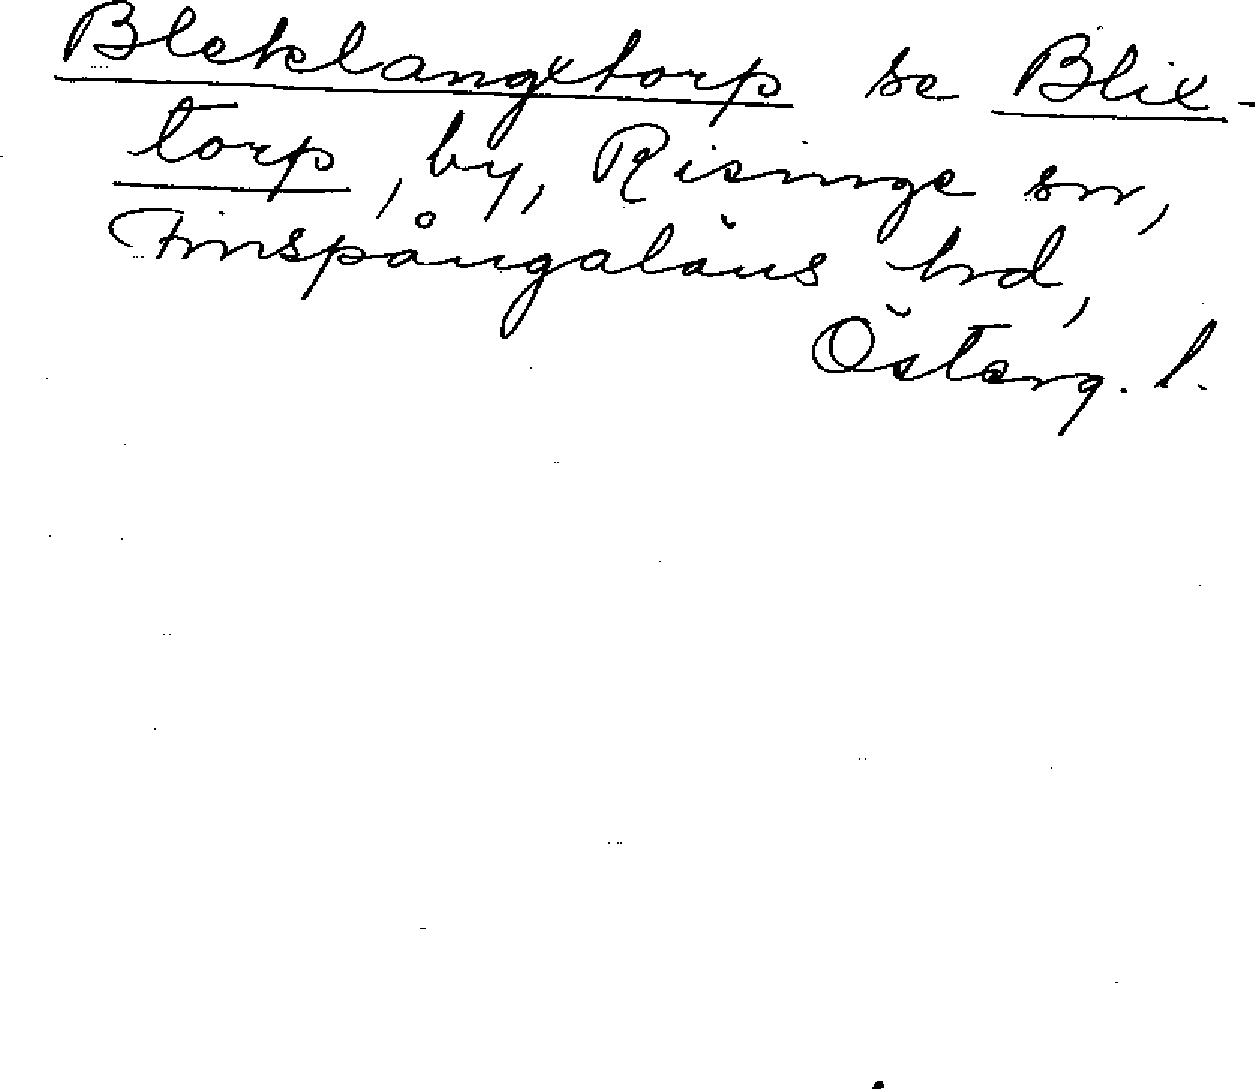 Bleklangxtorp se Blix-
torp, by, Risinge sn,
Finspångaläns hd,
Österg. l.